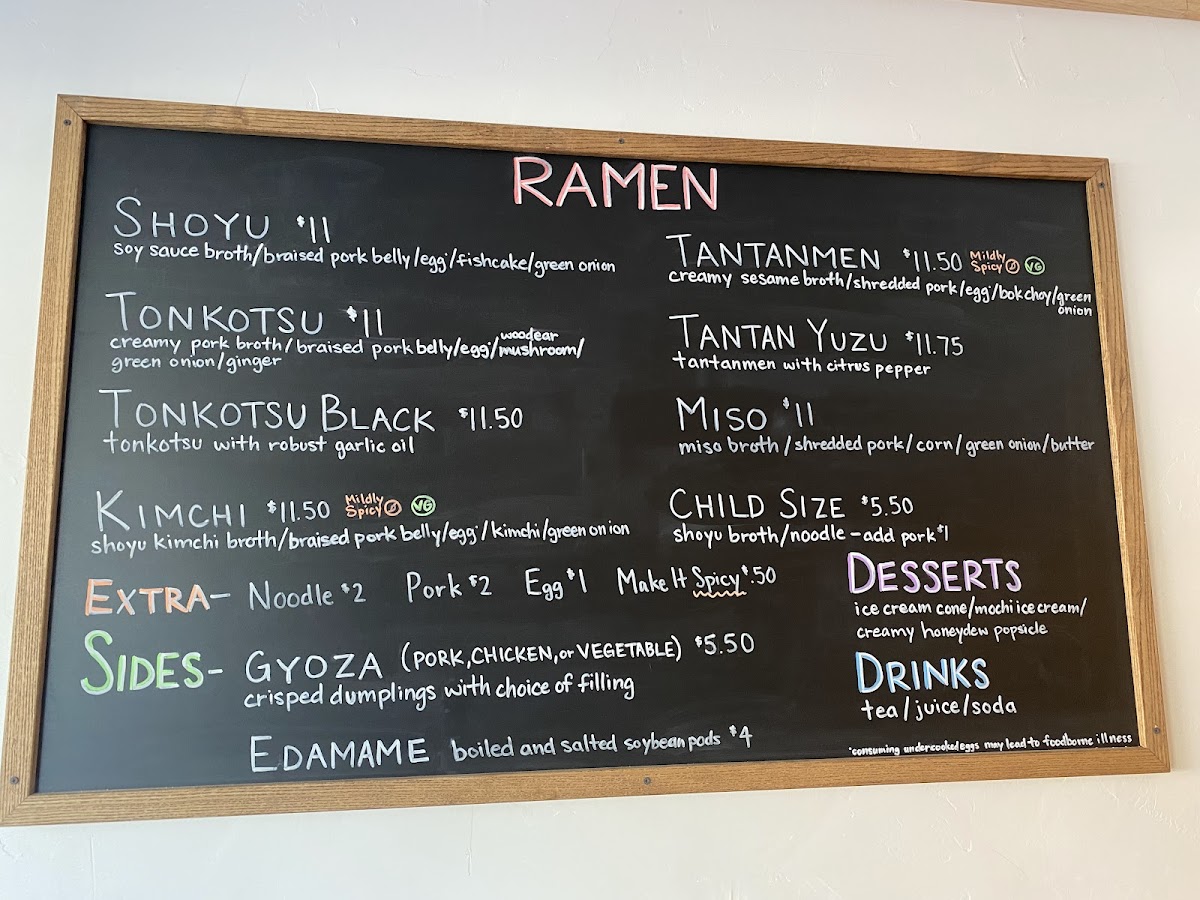 RAMEN
SHOYU $11
soy sauce broth/braised pork belly/egg*/fishcake/green onion
TONKOTSU $11
creamy pork broth/braised pork belly/egg*/woodear mushroom/
green onion/ginger
TONKOTSU BLACK $11.50
tonkotsu with robust garlic oil
KIMCHI $11.50 Mildly Spicy VG
shoyu kimchi broth/braised pork belly/egg*/kimchi/green onion
TANTANMEN $11.50 Mildly Spicy VG
creamy sesame broth/shredded pork/egg*/bok choy/green
onion
TANTAN YUZU $11.75
tantanmen with citrus pepper
MISO $11
miso broth/shredded pork/corn/green onion/butter
CHILD SIZE $5.50
shoyu broth/noodle-add pork $1
EXTRA- Noodle $2 Pork $2 Egg* $1 Make It Spicy $.50
SIDES- GYOZA (PORK, CHICKEN, or VEGETABLE) $5.50
crisped dumplings with choice of filling
EDAMAME boiled and salted soybean pods $4
DESSERTS
ice cream cone/mochi ice cream/
creamy honeydew popsicle
DRINKS
tea/juice/soda
*consuming undercooked eggs may lead to foodborne illness